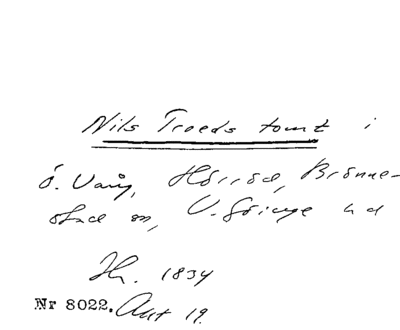 Nils Troeds tomt i
Ö. Vång, Hörröd, Brönne-
stad sn, V. Göinge hd
Jh. 1834
Nr 8022. Akt 19.